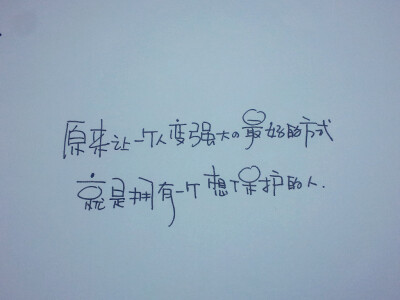 原来让一个人变强大的最好的方式
就是拥有一个想保护的人.